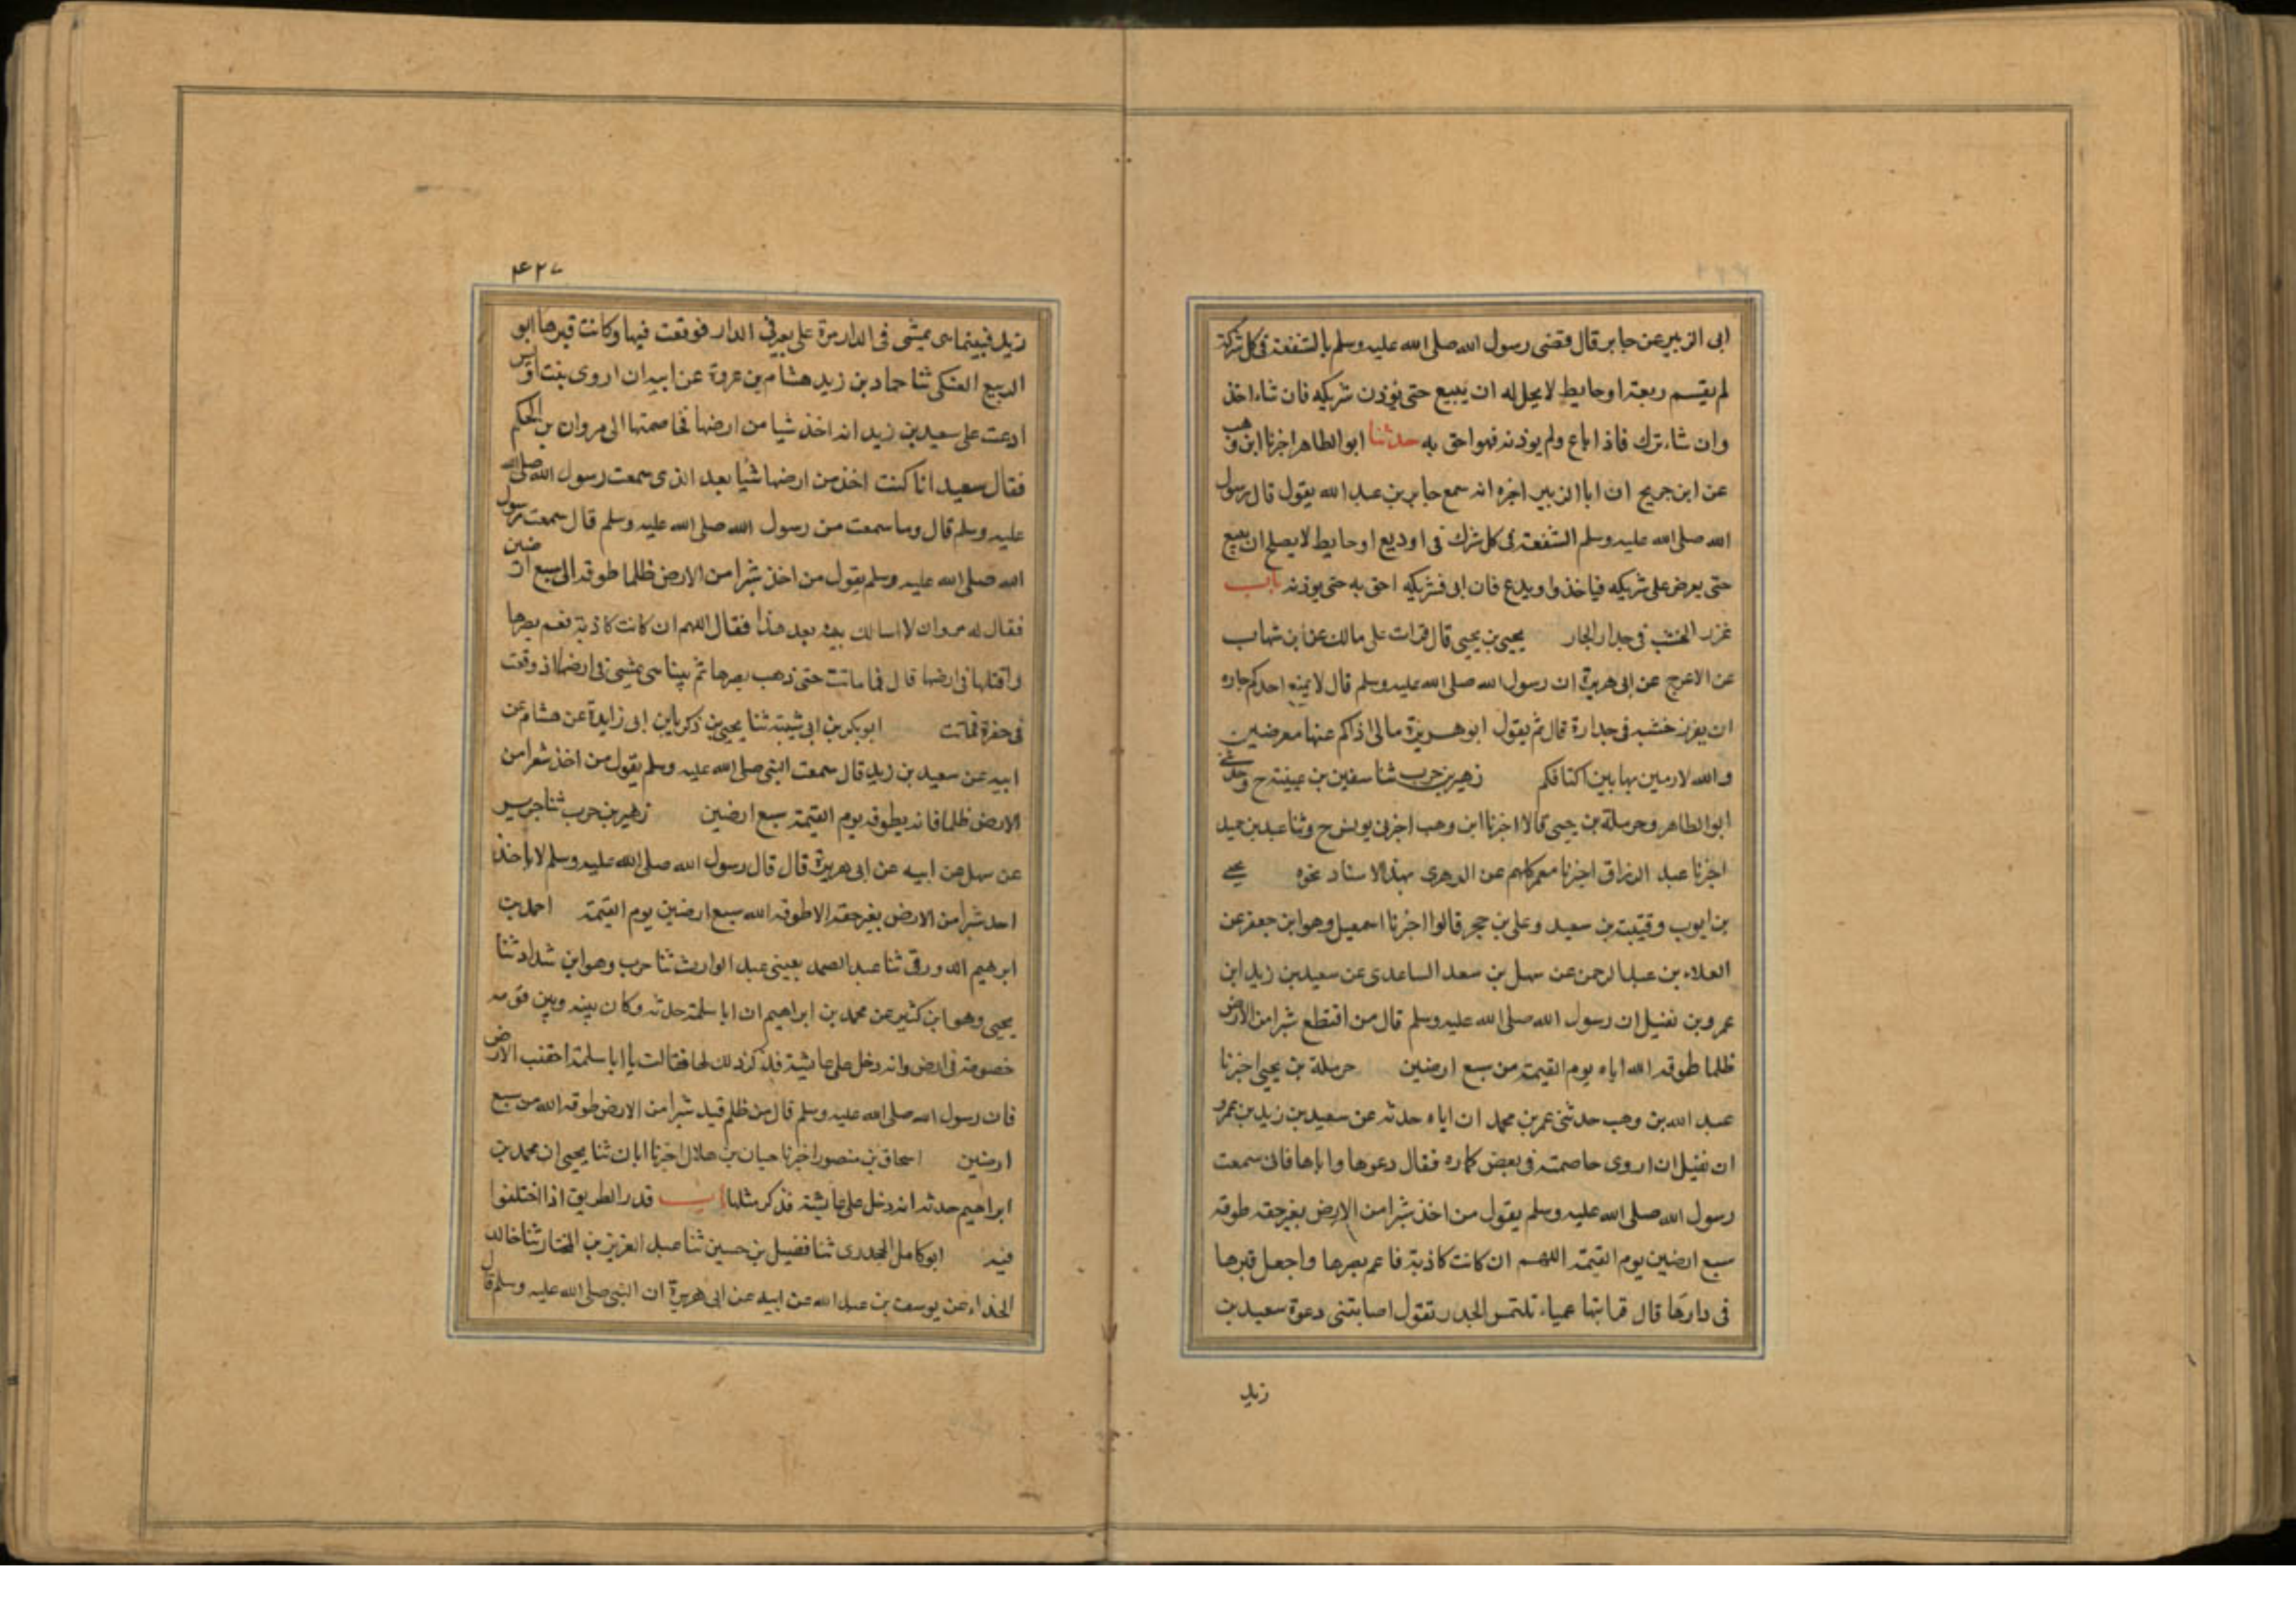 ابى الزبير عن جابر قال قضى رسول الله صلى الله عليه وسلم بالشفعة فى كل شركة
لم يقسم ربعة او حايط لا يحل له ان يبيع حتى يوذن شريكه فان شاء اخذ
وان شاء ترك فاذا باع ولم يوذنه فهو احق به حدثنا ابو الطاهر اخبرنا ابن وهب
عن ابن جريج ان ابا الزبير اخبره انه سمع جابر بن عبد الله يقول قال رسول
الله صلى الله عليه وسلم الشفعة فى كل شرك فى او ربع او حايط لا يصلح ان يبيع
حتى يعرض على شريكه فياخذ او يدع فان ابى فشريكه احق به حتى يوذنه باب
غرز الخشب فى جدار الجار يحيى بن يحيى قال قرات على مالك عن ابن شهاب
عن الاعرج عن ابى هريرة ان رسول الله صلى الله عليه وسلم قال لا يمنع احدكم جاره
ان يغرز خشبه فى جداره قال ثم يقول ابو هريرة مالى اراكم عنها معرضين
والله لارمين بها بين اكتافكم زهير بن حرب ثنا سفين بن عيينة ح وحدثنى
ابو الطاهر وحرملة بن يحيى قالا اخبرنا ابن وهب اخبرنى يونس ح وثنا عبد بن حميد
اخبرنا عبد الرزاق اخبرنا معمر كلهم عن الزهرى بهذا الاسناد نحوه يحيى
بن ايوب وقتيبة بن سعيد وعلى بن حجر قالوا اخبرنا اسمعيل وهو ابن جعفر عن
العلاء بن عبد الرحمن عن سهل بن سعد الساعدى عن سعيد بن زيد ابن
عمرو بن نفيل ان رسول الله صلى الله عليه وسلم قال من اقتطع شبرا من الارض
ظلما طوقه الله اياه يوم القيمة من سبع ارضين حرملة بن يحيى اخبرنا
عبد الله بن وهب حدثنى عمر بن محمد ان اباه حدثه عن سعيد بن زيد بن عمرو
ان نفيل ان اروى خاصمته فى بعض داره فقال دعوها واياها فانى سمعت
رسول الله صلى الله عليه وسلم يقول من اخذ شبرا من الارض بغير حقه طوقه
سبع ارضين يوم القيمة اللهم ان كانت كاذبة فاعم بصرها واجعل قبرها
فى دارها قال فرايتها عمياء تلتمس الجدر تقول اصابتنى دعوة سعيد بن
زيد
۴۲۷
زيد فبينما هى تمشى فى الدار مرة على بير فى الدار فوقعت فيها وكانت قبرها ابو
الربيع العتكى ثنا حماد بن زيد هشام بن عروة عن ابيه ان اروى بنت اوس
ادعت على سعيد بن زيد انه اخذ شيا من ارضها فخاصمتها الى مروان بن الحكم
فقال سعيد انا كنت اخذ من ارضها شيا بعد الذى سمعت رسول الله صلى الله
عليه وسلم قال وما سمعت من رسول الله صلى الله عليه وسلم قال سمعت رسول
الله صلى الله عليه وسلم يقول من اخذ شبرا من الارض ظلما طوقه الى سبع ارضين
فقال له مروان لا اسالك بينة بعد هذا فقال اللهم ان كانت كاذبة فعم بصرها
واقتلها فى ارضها قال فما ماتت حتى ذهب بصرها ثم بينا هى تمشى فى ارضها اذ وقعت
فى حفرة فماتت ابو بكر بن ابى شيبة ثنا يحيى بن زكريا بن ابى زايدة عن هشام عن
ابيه عن سعيد بن زيد قال سمعت النبى صلى الله عليه وسلم يقول من اخذ شبرا من
الارض ظلما فانه يطوقه يوم القيمة سبع ارضين زهير بن حرب ثنا جرير
عن سهل عن ابيه عن ابى هريرة قال قال رسول الله صلى الله عليه وسلم لا ياخذ
احد شبرا من الارض بغير حقه الا طوقه الله سبع ارضين يوم القيمة احمد بن
ابرهيم الدورقى ثنا عبد الصمد يعينى عبد الوارث ثنا حرب وهو ابن شداد ثنا
يحيى وهو ابن كثير عن محمد بن ابراهيم ان ابا سلمة حدثه وكان بينه وبين قومه
خصومة فى ارض وانه دخل على عايشة فذكر ذلك لها فقالت يا ابا سلمة اجتنب الارض
فان رسول الله صلى الله عليه وسلم قال من ظلم قيد شبرا من الارض طوقه الله من سبع
ارضين اسحاق بن منصور اخبرنا حبان بن هلال اخبرنا ابان ثنا يحيى ان محمد بن
ابراهيم حدثه انه دخل على عايشة فذكر مثله باب قدر الطريق اذا اختلفوا
فيه ابو كامل الجحدرى ثنا فضيل بن حسين ثنا عبد العزيز بن المختار ثنا خالد
الحذاء عن يوسف بن عبد الله عن ابيه عن ابى هريرة ان النبى صلى الله عليه وسلم قال